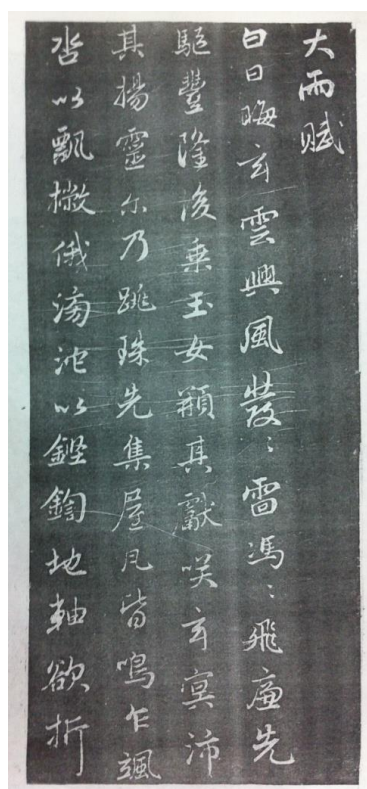 大雨賦
白日晦玄雲興風發〻雷馮〻飛廉先
驅豐隆後乗玉女顙其獻咲玄冥沛
其揚靈尒乃跳珠先集屋瓦皆鳴乍颯
沓以飄撇俄滂沱以鏗鍧地軸欲折